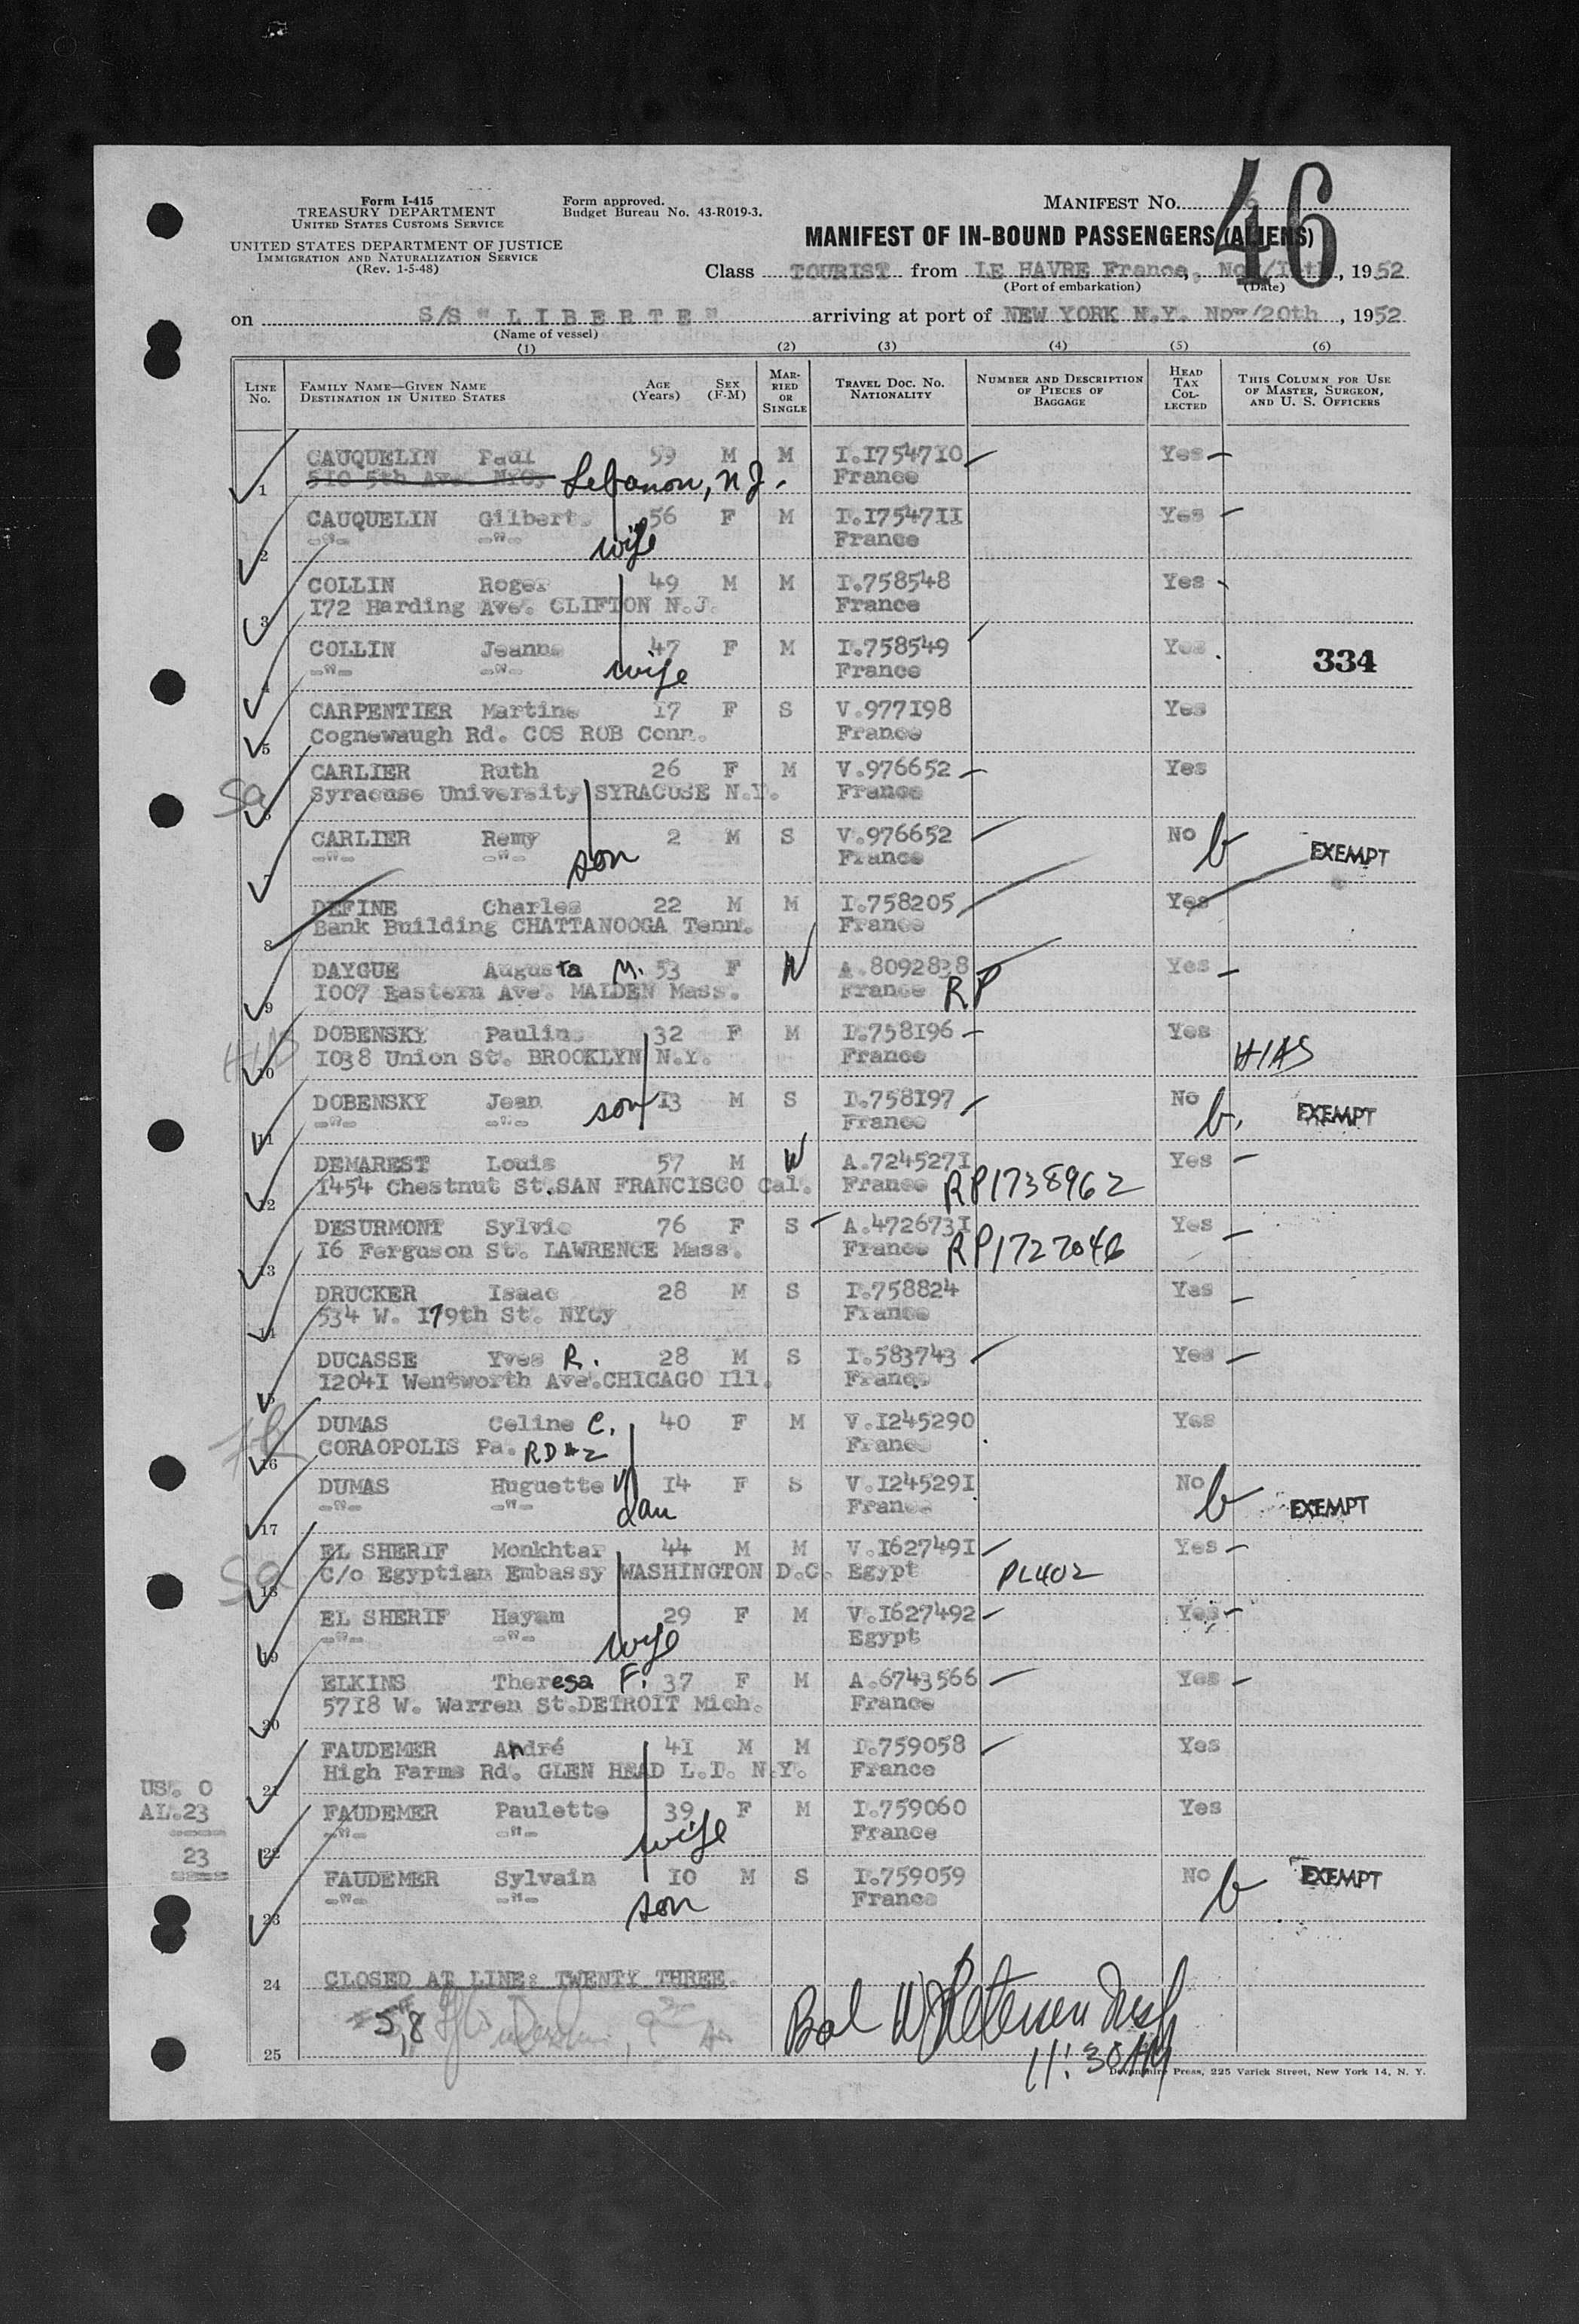 46
Form I-415
TREASURY DEPARTMENT
UNITED STATES CUSTOMS SERVICE
UNITED STATES DEPARTMENT OF JUSTICE
IMMIGRATION AND NATURALIZATION SERVICE
(Rev. 1-5-48)
Form approved.
Budget Bureau No. 43-R019-3.
MANIFEST NO.
MANIFEST OF IN-BOUND PASSENGERS (ALIENS)
Class TOURIST from LE HAVRE France, , 1952
(Port of embarkation) (Date)
on S/S " L I B E R T E " arriving at port of NEW YORK N.Y. Nov/20th , 1952
(Name of vessel)
(1) (2) (3) (4) (5) (6)
LINE No. FAMILY NAME—GIVEN NAME DESTINATION IN UNITED STATES AGE (Years) SEX (F-M) MARRIED OR SINGLE TRAVEL DOC. NO. NATIONALITY NUMBER AND DESCRIPTION OF PIECES OF BAGGAGE HEAD TAX COLLECTED THIS COLUMN FOR USE OF MASTER, SURGEON, AND U. S. OFFICERS
CAUQUELIN Paul 59 M M I.1754710 Yes
1 510 5th Ave. NYCy Lebanon, N.J. France
CAUQUELIN Gilbert 56 F M I.1754711 Yes
2 -"- -"- wife France
COLLIN Roger 49 M M I.758548 Yes
3 172 Harding Ave. CLIFTON N.J. France
COLLIN Jeanne 47 F M I.758549 Yes 334
4 -"- -"- wife France
CARPENTIER Martine 17 F S V.977198 Yes
5 Cognewaugh Rd. COS ROB Conn. France
CARLIER Ruth 26 F M V.976652 Yes
Sa 6 Syracuse University SYRACUSE N.Y. France
CARLIER Remy 2 M S V.976652 No b EXEMPT
7 -"- -"- son France
DEFINE Charles 22 M M I.758205 Yes
8 Bank Building CHATTANOOGA Tenn. France
DAYGUE Augusta M. 53 F W A.8092838 Yes
9 1007 Eastern Ave. MALDEN Mass. France RP
DOBENSKY Pauline 32 F M I.758196 Yes
HIAS 10 1038 Union St. BROOKLYN N.Y. France HIAS
DOBENSKY Jean son 13 M S I.758197 No b. EXEMPT
11 -"- -"- France
DEMAREST Louis 57 M W A.7245271 Yes
12 1454 Chestnut St.SAN FRANCISCO Cal. France RP1738962
DESURMONT Sylvie 76 F S A.4726731 Yes
13 16 Ferguson St. LAWRENCE Mass. France RP1727046
DRUCKER Isaac 28 M S I.758824 Yes
14 534 W. 179th St. NYCy France
DUCASSE Yves R. 28 M S I.583743 Yes
15 12041 Wentworth Ave.CHICAGO Ill. France
DUMAS Celine C. 40 F M V.1245290 Yes
16 CORAOPOLIS Pa. RD#2 France
DUMAS Huguette 14 F S V.1245291 No b EXEMPT
17 -"- -"- dau France
EL SHERIF Monkhtar 44 M M V.1627491 Yes
Sa 18 C/o Egyptian Embassy WASHINGTON D.C. Egypt PL402
EL SHERIF Hayam 29 F M V.1627492 Yes
19 -"- -"- wife Egypt
ELKINS Theresa F. 37 F M A.6743566 Yes
20 5718 W. Warren St.DETROIT Mich. France
FAUDEMER André 41 M M I.759058 Yes
21 High Farms Rd. GLEN HEAD L.I. N.Y. France
US. 0
AL.23
FAUDEMER Paulette 39 F M I.759060 Yes
22 -"- -"- wife France
23
FAUDEMER Sylvain 10 M S I.759059 No b EXEMPT
23 -"- -"- son France
24 CLOSED AT LINE: TWENTY THREE.
Bal W Petersen Insp
11:30 AM
25
Devonshire Press, 225 Varick Street, New York 14, N. Y.